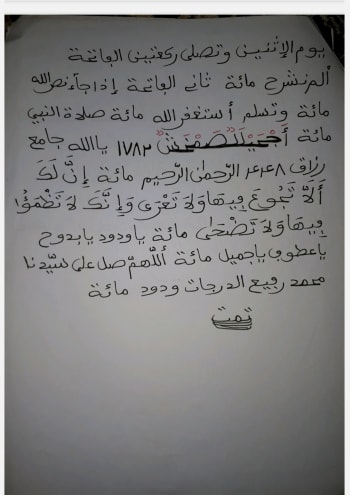 يوم الإثنين وتصلي ركعتين الفاتحة
ألم نشرح مائة ثاني الفاتحة إذا جاء نصر الله
مائة وتسلم أستغفر الله مائة صلاة النبي
مائة ١٧٨٢ يا الله جامع
رزاق الرّحمٰن الرّحيم مائة إِنَّ لَكَ
أَلاَّ تَجُوعَ فِيهَا وَلَا تَعْرَى وَإِنَّكَ لَا تَظْمَؤُا
فِيهَا وَلَا تَضْحَى مائة يا ودود يا بدوح
يا عطوف يا جميل مائة أللّهمّ صل على سيّدنا
محمد رفيع الدرجات ودود مائة
تمت